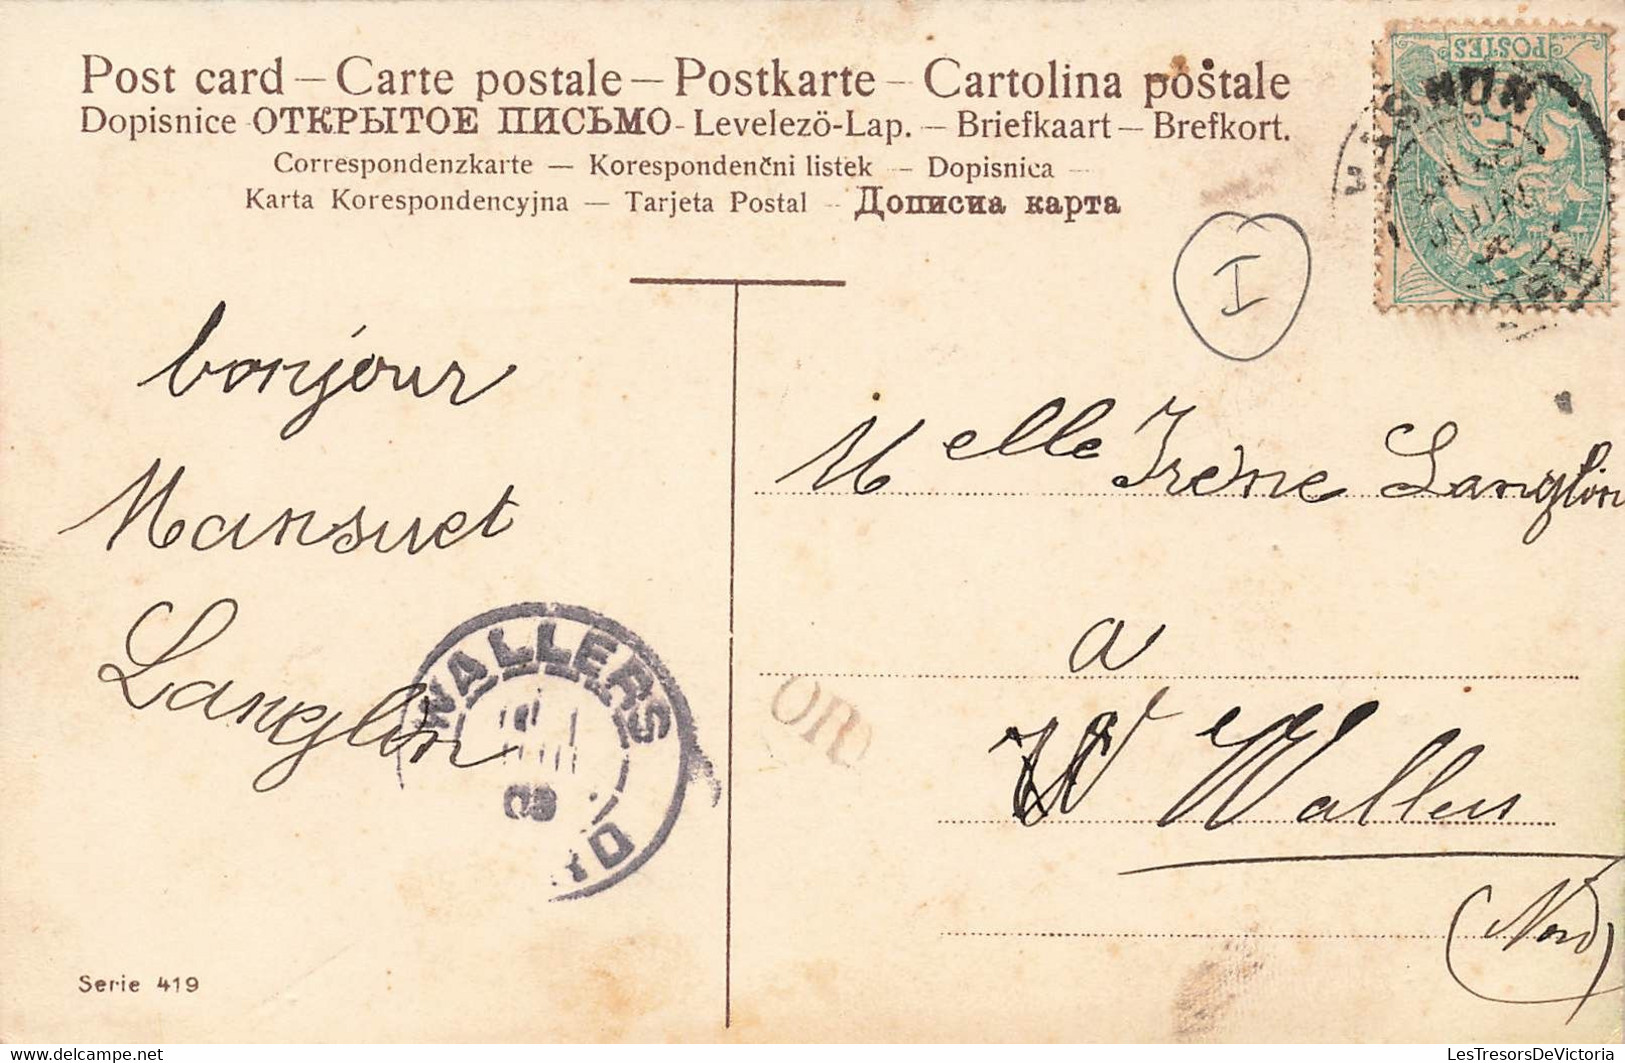 Post card – Carte postale – Postkarte – Cartolina postale
Dopisnice - ОТКРЫТОЕ ПИСЬМО - Levelezö-Lap. – Briefkaart – Brefkort.
Correspondenzkarte — Korespondenčni listek – Dopisnica –
Karta Korespondencyjna — Tarjeta Postal – Дописна карта
POSTES
I
bonjour
Mansuet
Langlin
Melle Irène Langlin
a
W Wallers
(Nord)
WALLERS
09
OR
Serie 419
www.LesTresorsDeVictoria.delcampe.net
LesTresorsDeVictoria